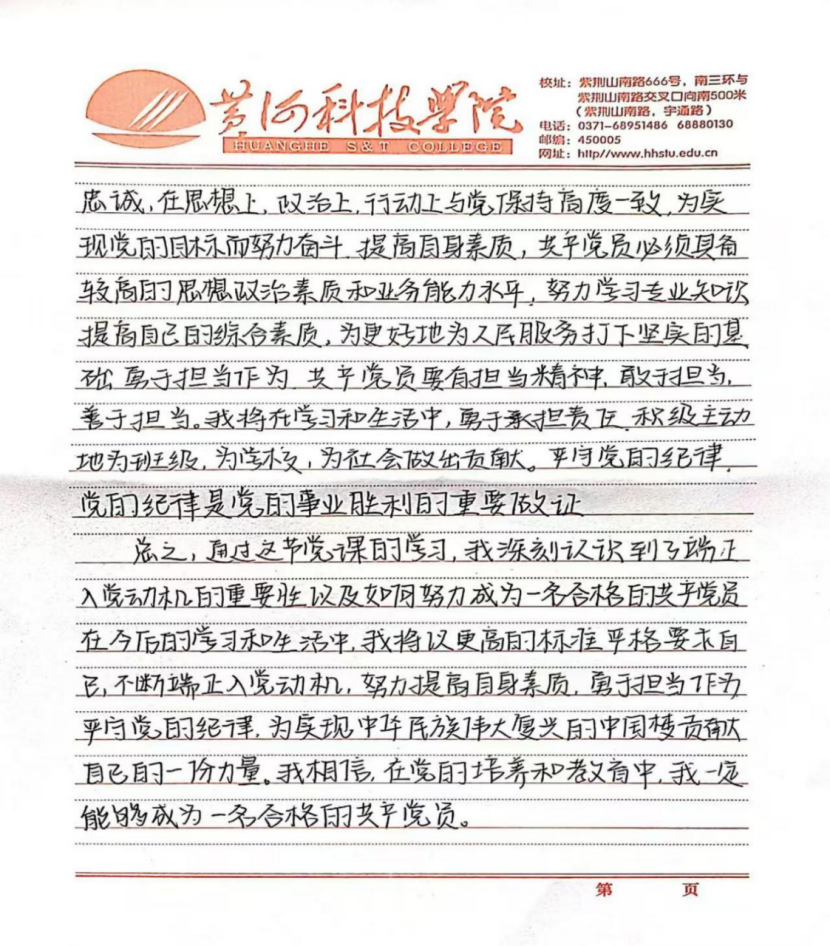 黄河科技学院
HUANGHE S&T COLLEGE
校址：紫荆山南路666号，南三环与
紫荆山南路交叉口向南500米
（紫荆山南路，宇通路）
电话：0371-68951486 68880130
邮编：450005
网址：http//www.hhstu.edu.cn
忠诚，在思想上，政治上，行动上与党保持高度一致，为实
现党的目标而努力奋斗.提高自身素质，共产党员必须具备
较高的思想政治素质和业务能力水平，努力学习专业知识
提高自己的综合素质，为更好地为人民服务打下坚实的基
础.勇于担当作为.共产党员要有担当精神，敢于担当，
善于担当。我将在学习和生活中，勇于承担责任.积级主动
地为班级，为学校，为社会做出贡献。严守党的纪律.
党的纪律是党的事业胜利的重要保证
总之，通过这节党课的学习，我深刻认识到了端正
入党动机的重要性以及如何努力成为一名合格的共产党员
在今后的学习和生活中，我将以更高的标准严格要求自
己，不断端正入党动机，努力提高自身素质，勇于担当作为
严守党的纪律，为实现中华民族伟大复兴的中国梦贡献
自己的一份力量。我相信，在党的培养和教育中，我一定
能够成为一名合格的共产党员。
第 页